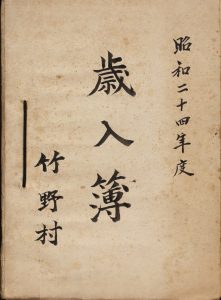 昭和二十四年度
歳入簿
竹野村